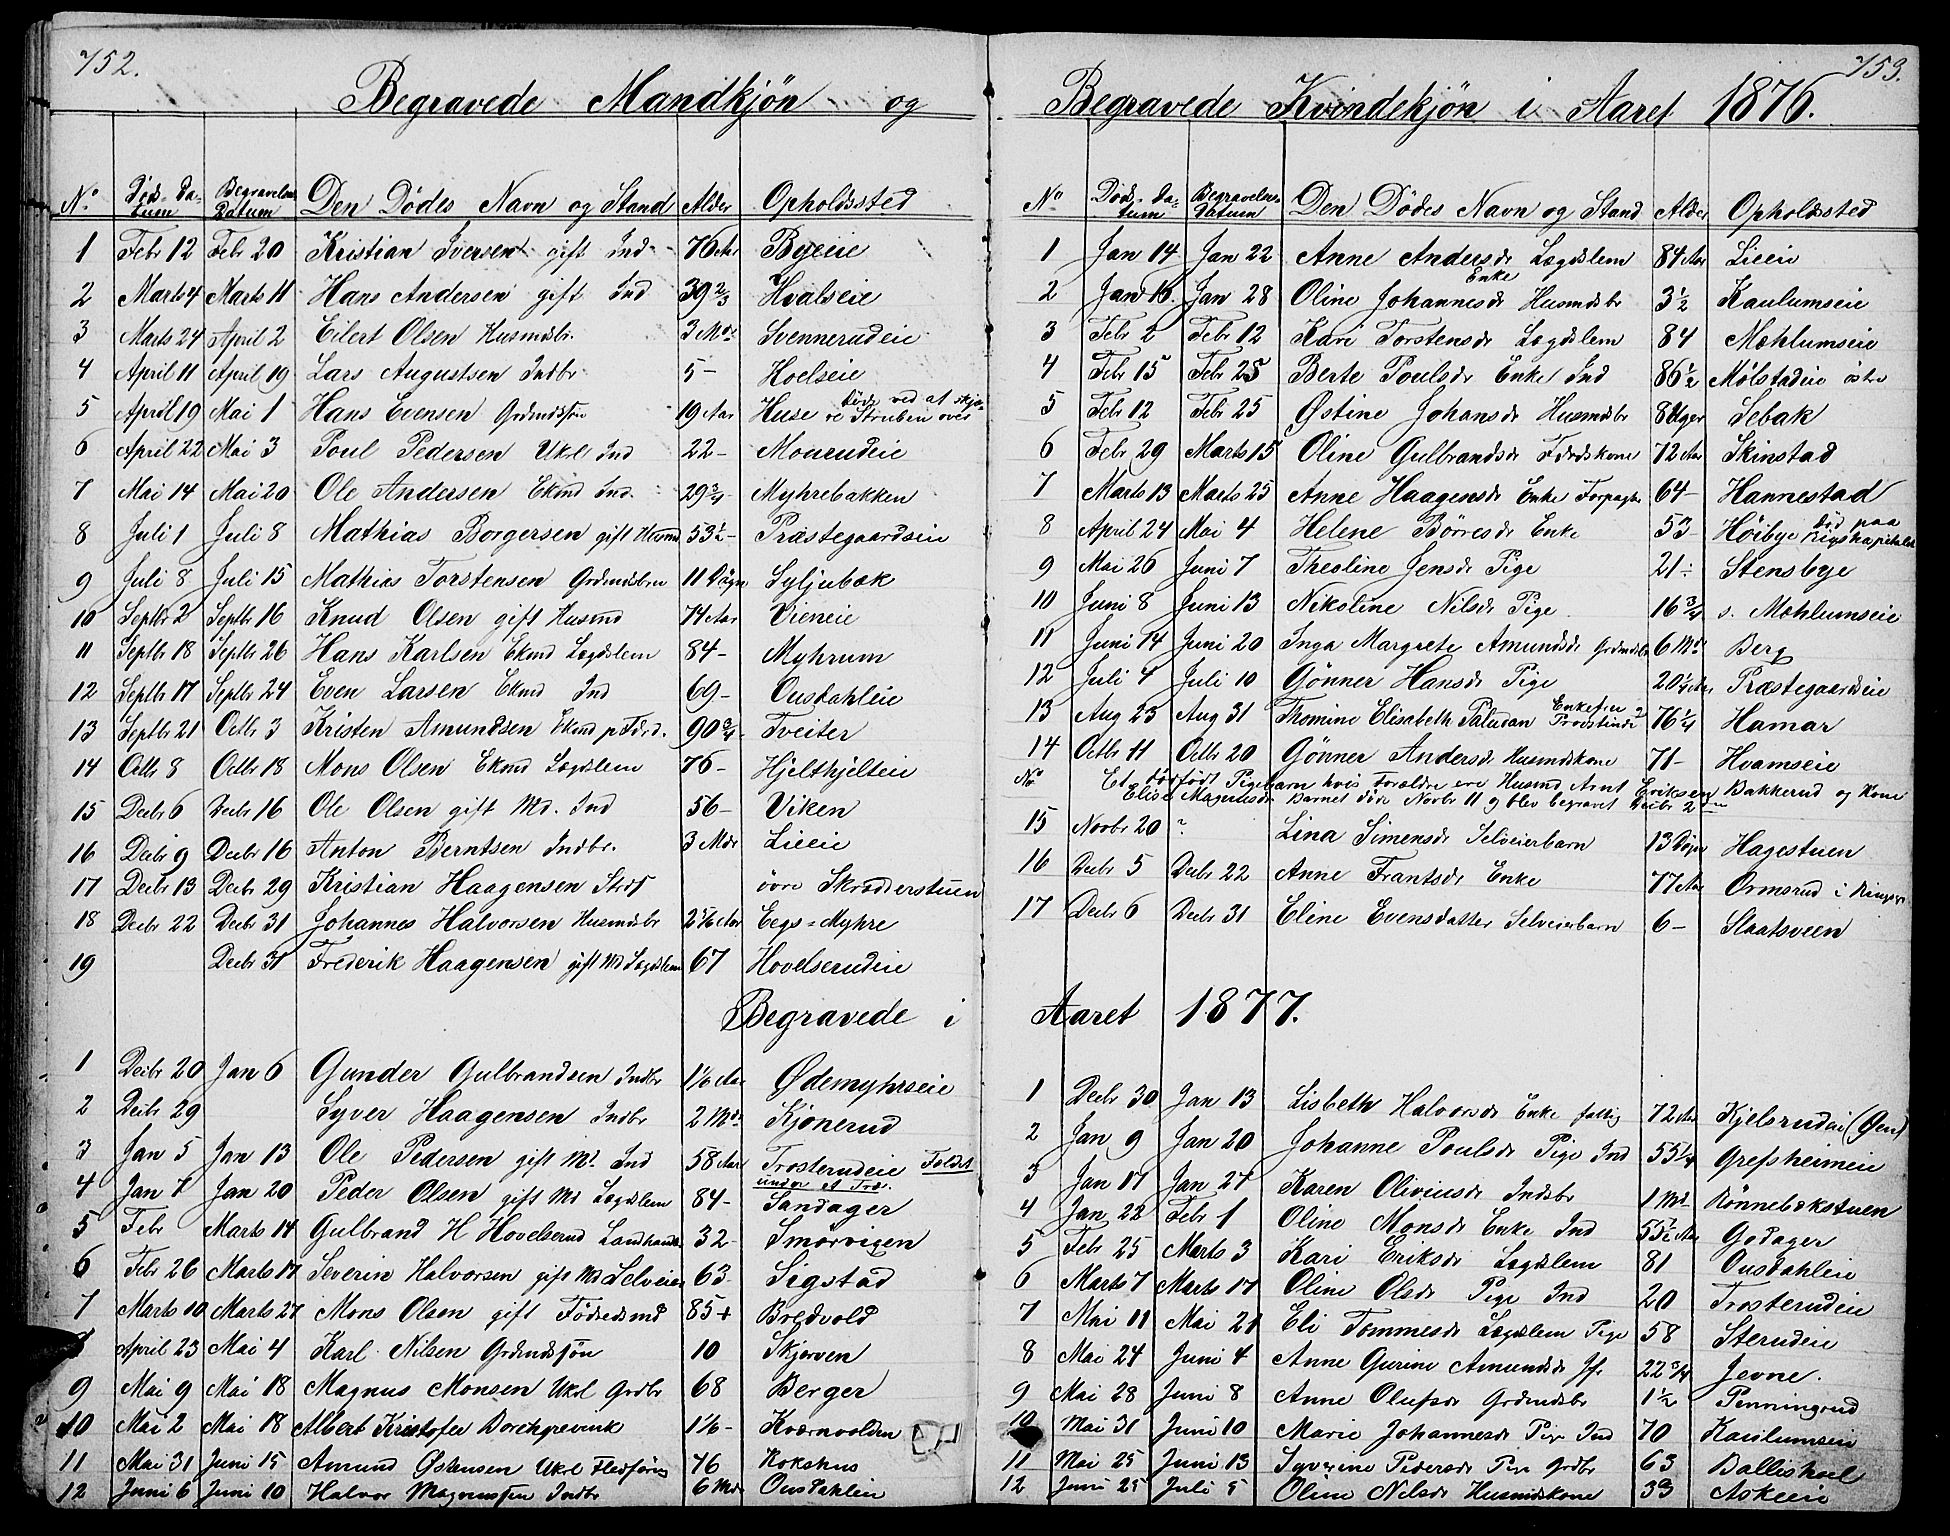 752.
Begravede Mandkjön og
No Död. Da-tum Begravelses Datum Den Dödes Navn og Stand Alder Opholdssted
1 Febr 12 Febr 20 Kristian Iversen gift Ind 76 Aar Byeie
2 Marts 4 Marts 11 Hans Andersen gift Ind 39 2/3 Hvalseie
3 Marts 24 April 2 Eilert Olsen Husmdsbr. 3 Mdr Svennerudeie
4 April 11 April 19 Lars Augustsen Indbr 5 - Hoelseie
5 April 19 Mai 1 Hans Evensen Grdmdsön 19 Aar Huse döde ved at skjæ-re Struben over
6 April 22 Mai 3 Poul Pedersen Ukrl Ind 22 - Mouerudeie
7 Mai 14 Mai 20 Ole Andersen Ekmd Ind. 29 3/4 - Myhrebakken
8 Juli 1 Juli 8 Mathias Borgersen gift Husmd 53 1/2 - Præstegaardseie
9 Juli 8 Juli 15 Mathias Torstensen Grdmdsbrn 11 Dögn Syljubæk
10 Septbr 2 Septbr 16 Knud Olsen gift Husmd 74 Aar Vieneie
11 Septbr 18 Septbr 26 Hans Karlsen Ekmd Lægdslem 84 - Myhrum
12 Septbr 17 Septbr 24 Even Larsen Ekmd Ind 69 - Ousdahleie
13 Septbr 21 Octbr 3 Kristen Amundsen Ekmd p Födrd. 90 3/4 - Tveiter
14 Octbr 8 Octbr 18 Mons Olsen Ekmd Lægdslem 76 - Hjelthjelteie
15 Decbr 6 Decbr 16 Ole Olsen gift Md. Ind 56 - Viken
16 Decbr 9 Decbr 16 Anton Berntsen Indbr. 3 Mdr Lieeie
17 Decbr 13 Decbr 29 Kristian Haagensen övre Skrædderstuen
18 Decbr 22 Decbr 31 Johannes Halvorsen Husmdsbr 2 5/6 Aar Eegs=Myhre
19 Decbr 31 Frederik Haagensen gift Md Lægdslem 67 Hovelserudeie
Begravede i
1 Decbr 20 Jan 6 Gunder Gulbrandsen Indbr 1 1/6 Aar Ødemyhrseie
2 Decbr 29 Syver Haagensen Indbr 2 Mdr Kjönerud
3 Jan 5 Jan 13 Ole Pedersen gift Md. Ind 58 Aar Trosterudeie Faldt under et Træ.
4 Jan 7 Jan 20 Peder Olsen gift Md Lægdslem 84 - Sandager
5 Febr Marts 14 Gulbrand H Hovelserud Landhandl 32 - Smörvigen
6 Febr 26 Marts 17 Severin Halvorsen gift Md Selveier 63 - Sigstad
7 Marts 10 Marts 27 Mons Olsen gift Födredsmd 85 + Bredvold
8 April 23 Mai 4 Karl Nilsen Grdmdsjön 10 Skjerven
9 Mai 9 Mai 18 Magnus Monsen Ukrl Grdbr 68 Berger
10 Mai 2 Mai 18 Albert Kristofer Borchgrevink 1 1/6 - Kværnvolden
11 Mai 31 Juni 15 Amund Østensen Ukrl Fledföring 46 Kokshus
12 Juni 6 Juni 10 Halvor Magnussen Indbr 6 Mdr Ousdahleie
753.
Begravede Kvindekjön i Aaret 1876.
No Död. Da-tum Begravelses Datum Den Dödes Navn og Stand Alder Opholdssted
1 Jan 14 Jan 22 Anne Andersdr Lægdslem 84 Aar Lieeie
2 Jan 16. Jan 28 Oline Johannesdr Enke Husmdsbr 3 1/2 Kaulumseie
3 Febr 2 Febr 12 Kari Torstensdr Lægdslem 84 Mæhlumseie
4 Febr 15 Febr 25 Berte Poulsdr Enke Ind 86 1/2 Mölstadeie östre
5 Febr 12 Febr 25 Østine Johansdr Husmdsbr 8 Uger Sebak
6 Febr 29 Marts 15 Oline Gulbrandsdr Födrdskone 72 Aar Skinstad
7 Marts 13 Marts 25 Anne Haagensdr Enke Forpagtr 64 - Hannestad
8 April 24 Mai 4 Helene Börresdr Enke 53 Höibye död paa Rigshospitalet
9 Mai 26 Juni 7 Theoline Jensdr Pige 21 - Stensbye
10 Juni 8 Juni 13 Nikoline Nilsdr Pige 16 3/4 s. Mæhlumseie
11 Juni 14 Juni 20 Inga Margrete Amundsdr Grdmdsbr 6 Mdr Berg
12 Juli 4 Juli 10 Gönner Hansdr Pige 20 1/4 Aar Præstegaardseie
13 Aug 23 Aug 31 Thomine Elisabeth Paludan Enkefru Provstinde 76 1/4 Hamar
14 Octbr 11 Octbr 20 Gönner Andersdr Husmdskone 71 - Hvamseie
No Et dödfödt Pigebarn hvis Forældre ere Husmd Arnt Eriksen Bakkerud og Kone
Elise Magnusdr Barnet döde Novbr 11 og blev begravet Decbr 2den
15 Novbr 20 ? Lina Simensdr Selveierbarn 13 Dögn Hagestuen
16 Decbr 5 Decbr 22 Anne Frantsdr Enke 77 Aar Ormsrud i Ringsa
17 Decbr 6 Decbr 31 Eline Evensdatter Selveierbarn 6 - Slaatsveen
Aaret 1877.
1 Decbr 30 Jan 13 Lisbeth Halvorsdr Enke fattig 72 Aar Kjelsrudei (Øen)
2 Jan 9 Jan 20 Johanne Poulsdr Pige Ind 55 1/4 Grefsheimeie
3 Jan 17 Jan 27 Karen Oliviusdr Indsbr 1 Md. Rönnebækstuen
4 Jan 22 Febr 1 Oline Monsdr Enke Ind 55 1/2 Aar Godager
5 Febr 25 Marts 3 Kari Eriksdr Lægdslem 81 Ousdahleie
6 Marts 7 Marts 17 Oline Olsdr Pige Ind 20 Trosterudeie
7 Mai 11 Mai 21 Eli Tommesdr Lægdslem Pige 58 Sterudeie
8 Mai 24 Juni 4 Anne Gurine Amundsdr Jfr 22 3/4 Jevne.
9 Mai 28 Juni 8 Anne Olufsdr Grdmdsbr 1 1/2 Penningrud
10 Mai 31 Juni 10 Marie Johannesdr Pige Ind 70 Kaulumseie
11 Mai 25 Juni 13 Syverine Pedersdr Pige Grdbr 63 Ballishoel
12 Juni 25 Juli 5 Oline Nilsdr Husmdskone 33 Askeeie